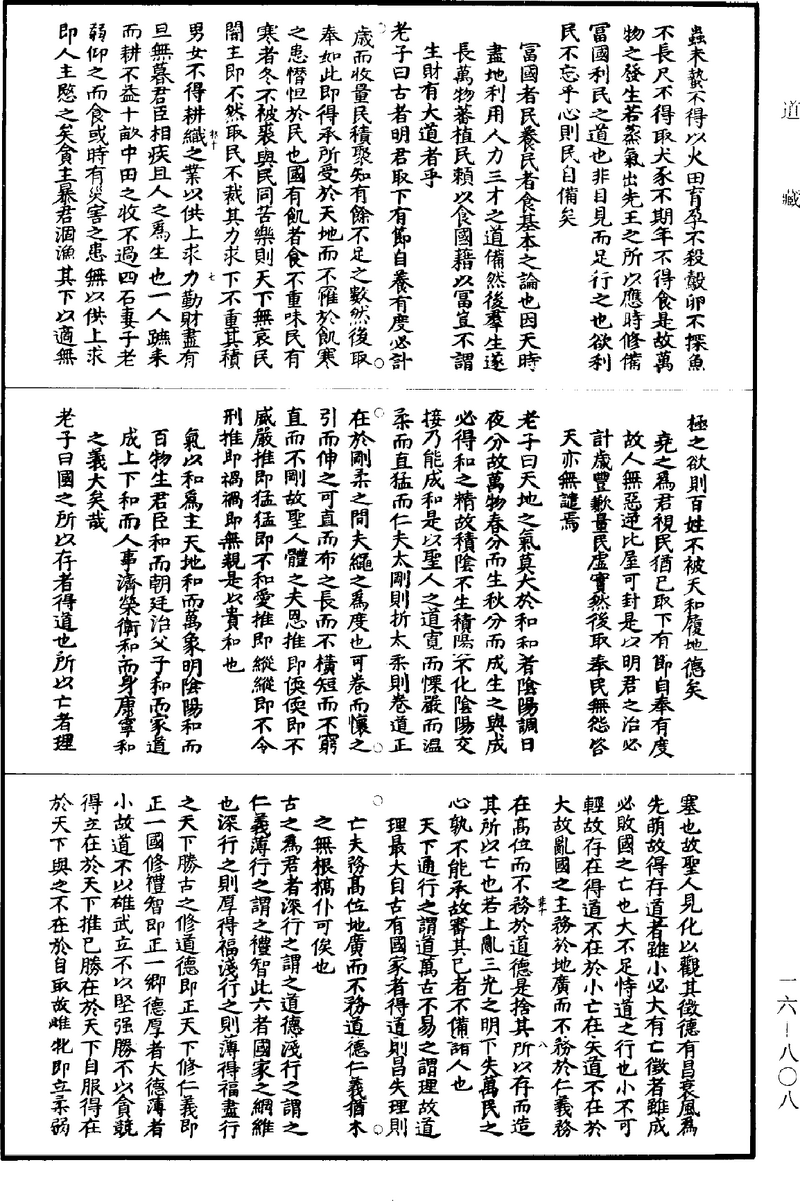 道藏
一六—八〇八
蟲未蟄不得以火田育孕不殺鷇卵不探魚
不長尺不得取犬豕不期年不得食是故萬
物之發生若蒸氣出先王之所以應時修備
富國利民之道也非目見而足行之也欲利
民不忘乎心則民自備矣
富國者民養民者食基本之論也因天時
盡地利用人力三才之道備然後羣生遂
長萬物蕃植民賴以食國藉以富豈不謂
生財有大道者乎
老子曰古者明君取下有節自養有度必計
歲而收量民積聚知有餘不足之數然後取
奉如此即得承所受於天地而不罹於飢寒
之患憯怛於民也國有飢者食不重味民有
寒者冬不被裘與民同苦樂則天下無哀民
闇主即不然取民不裁其力求下不量其積
男女不得耕織之業以供上求力勤財盡有
旦無暮君臣相疾且人之為生也一人蹠耒
而耕不益十畝中田之收不過四石妻子老
弱仰之而食或時有災害之患無以供上求
即人主愍之矣貪主暴君涸漁其下以適無
極之欲則百姓不被天和履地德矣
堯之為君視民猶己取下有節自奉有度
故人無惡逆比屋可封是以明君之治必
計歲豐歉量民虛實然後取奉民無怨咨
天亦無譴焉
老子曰天地之氣莫大於和和者陰陽調日
夜分故萬物春分而生秋分而成生之與成
必得和之精故積陰不生積陽不化陰陽交
接乃能成和是以聖人之道寬而慄嚴而溫
柔而直猛而仁夫太剛則折太柔則卷道正
在於剛柔之間夫繩之為度也可卷而懷之
引而伸之可直而布之長而不橫短而不窮
直而不剛故聖人體之夫恩推即偄偄即不
威嚴推即猛猛即不和愛推即縱縱即不令
刑推即禍禍即無親是以貴和也
氣以和為主天地和而萬象明陰陽和而
百物生君臣和而朝廷治父子和而家道
成上下和而人事濟榮衛和而身康寧和
之義大矣哉
老子曰國之所以存者得道也所以亡者理
塞也故聖人見化以觀其徵德有昌衰風為
先萌故得存道者雖小必大有亡徵者雖成
必敗國之亡也大不足恃道之行也小不可
輕故存在得道不在於小亡在失道不在於
大故亂國之主務於地廣而不務於仁義務
在高位而不務於道德是捨其所以存而造
其所以亡也若上亂三光之明下失萬民之
心孰不能承故審其己者不備諸人也
天下通行之謂道萬古不易之謂理故道
理最大自古有國家者得道則昌失理則
亡夫務高位地廣而不務道德仁義猶木
之無根槁仆可俟也
古之為君者深行之謂之道德淺行之謂之
仁義薄行之謂之禮智此六者國家之綱維
也深行之則厚得福淺行之則薄得福盡行
之天下勝古之修道德即正天下修仁義即
正一國修禮智即正一鄉德厚者大德薄者
小故道不以雄武立不以堅强勝不以貪競
得立在於天下推己勝在於天下自服得在
於天下與之不在於自取故雌牝即立柔弱